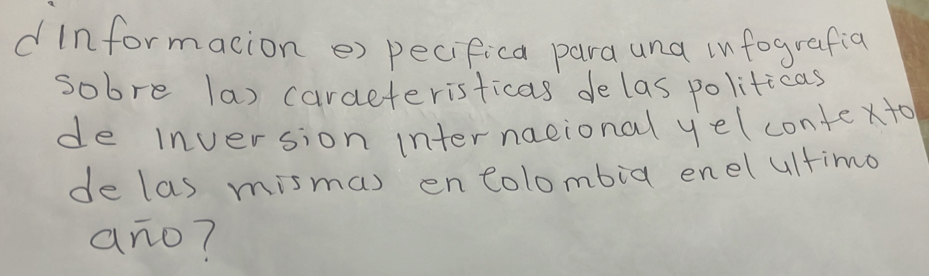 d informacion especifica para una infografia
sobre las caracteristicas de las politicas
de inversion internacional y el contexto
de las mismas en Colombia en el ultimo
año?